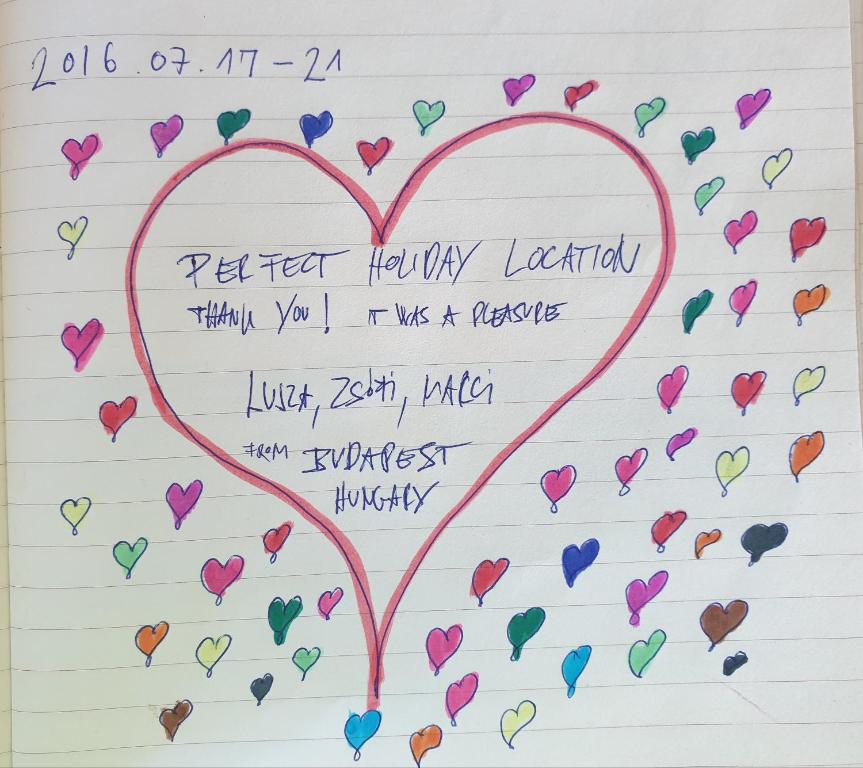 2016.07.17-21
PERFECT HOLIDAY LOCATION
THANK YOU! IT WAS A PLEASURE
LUJZA, ZSÓTI, MARCI
FROM BUDAPEST
HUNGARY